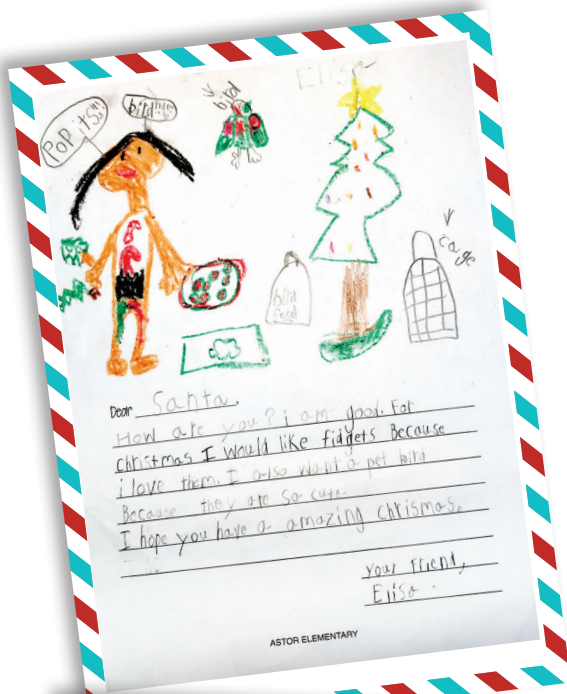 Elisa
POP its!!
bird
bird
cage
bird
food
Dear Santa,
How are you? i am good. For
christmas I would like fidgets Because
i love them. I also want a pet bird
Because they are so cute.
I hope you have a amazing chrismas.
Your Friend,
Elisa.
ASTOR ELEMENTARY